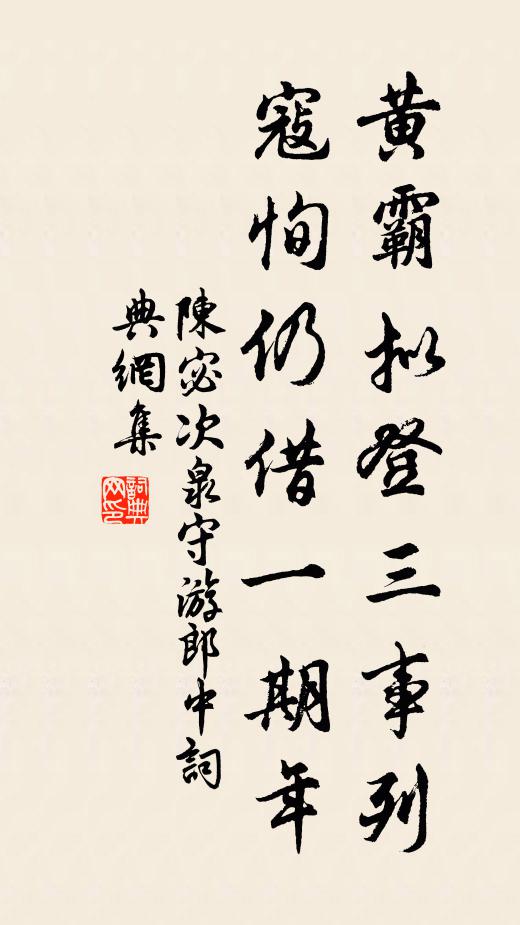 黃霸拟登三事列
寇恂仍借一期年
陳宓次泉守游郎中詞
典網集
詞典
网印